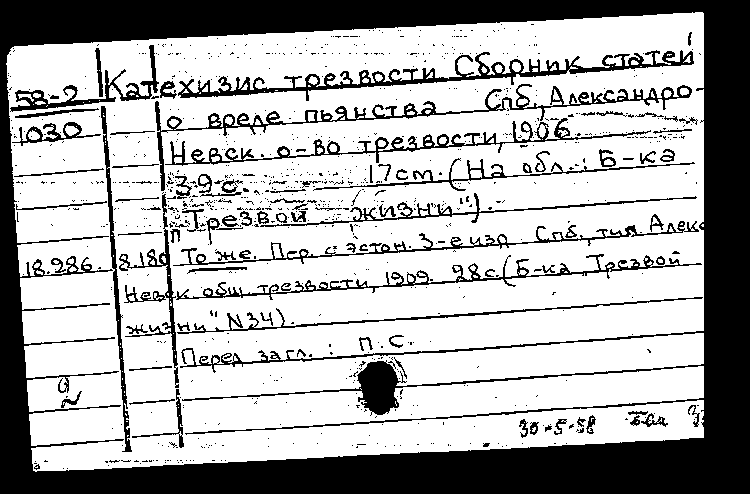 58-2 Катехизис трезвости Сборник статей
1030 о вреде пьянства Спб., Александро-
Невск. о-во трезвости, 1906.
39 с. 17 cm. (На обл.: Б-ка
"Трезвой жизни").
18.286 8.180 То же. Пер. с эстон. 3-е изд Спб., тип Алекс
Невск общ. трезвости, 1909. 28с. (Б-ка „Трезвой
жизни". N34).
Перед загл.: П.С.
2
30-5-58